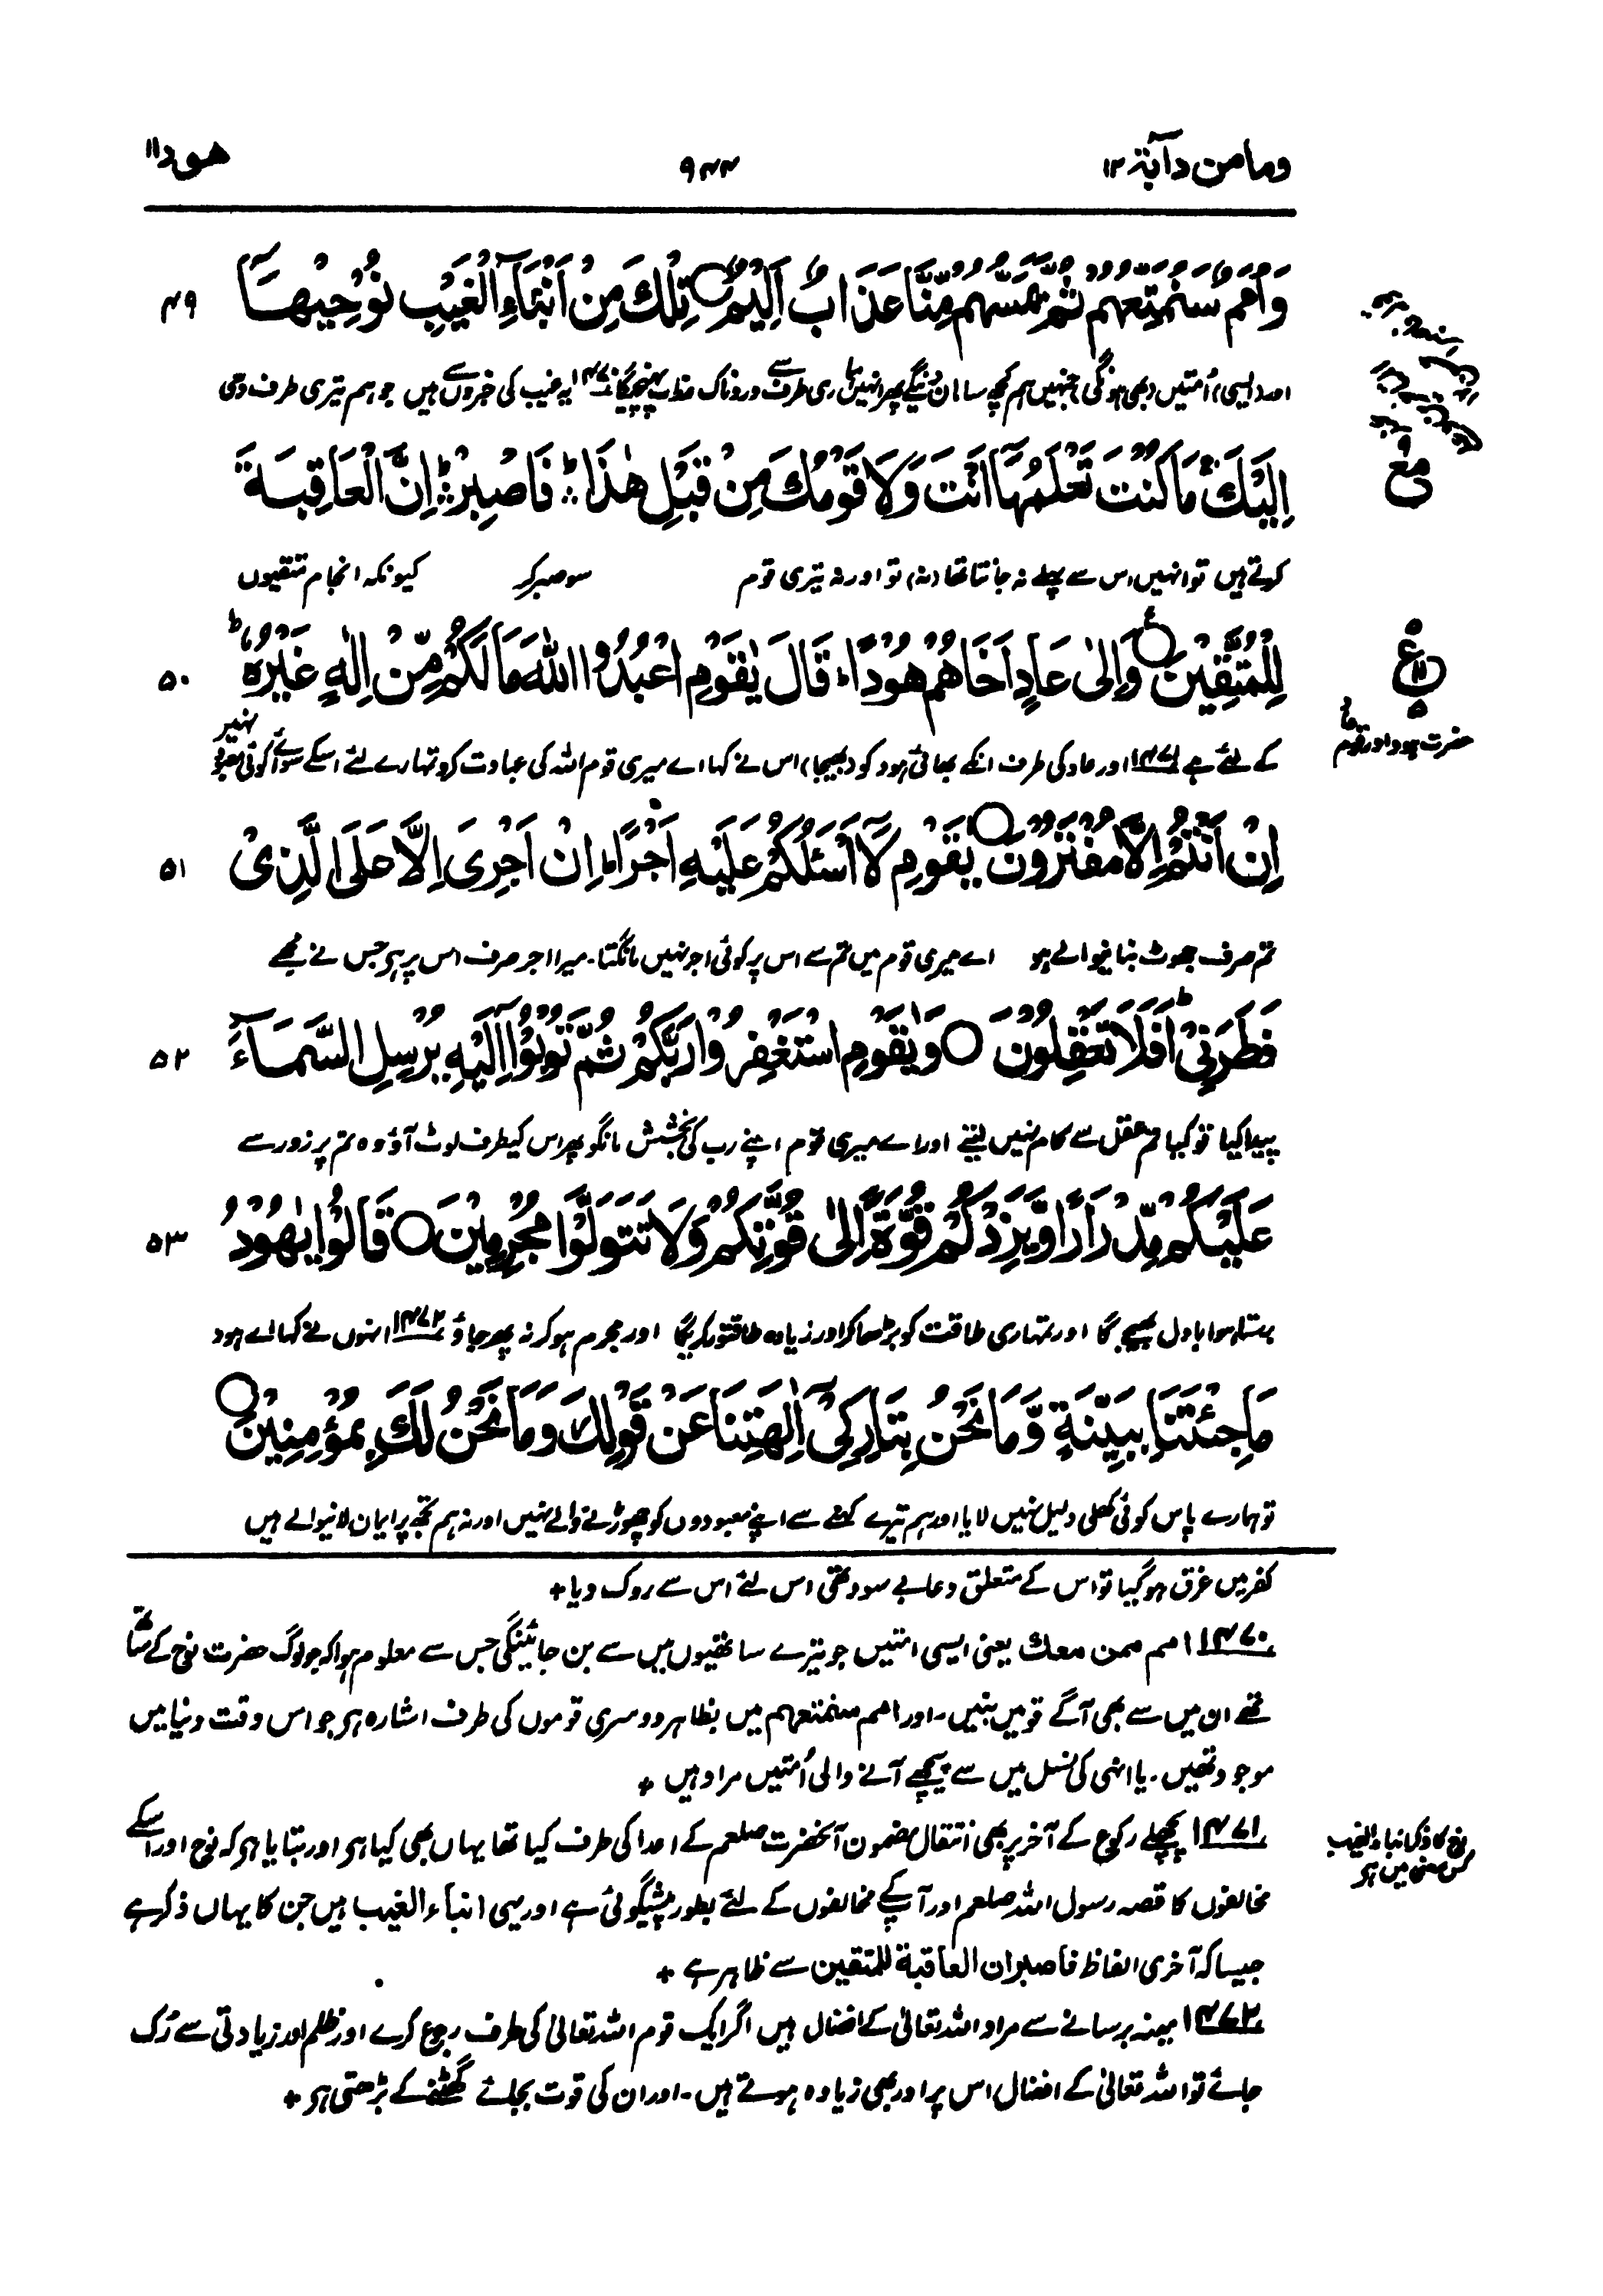 ومامن دآبۃ ۱۲
۹۴۴
ھود ۱۱
وَاُمَمٌ سَنُمَتِّعُهُمْ ثُمَّ يَمَسُّهُمْ مِّنَّا عَذَابٌ اَلِيْمٌ ○ تِلْكَ مِنْ اَنْۢبَآءِ الْغَيْبِ نُوْحِيْهَآ ۴۹
اور (ایسی) اُمتیں (بھی ہونگی) جنہیں ہم کچھ سامان دینگے پھر انہیں ہماری طرف سے دردناک عذاب پہنچیگا ۱۴۷۰ یہ غیب کی خبروں سے ہیں جو ہم تیری طرف وحی
اِلَيْكَ ۚ مَا كُنْتَ تَعْلَمُهَآ اَنْتَ وَلَا قَوْمُكَ مِنْ قَبْلِ هٰذَا ۛ فَاصْبِرْ ۛ اِنَّ الْعَاقِبَةَ
کرتے ہیں تو انہیں اس سے پہلے نہ جانتا تھا (نہ) تو اور نہ تیری قوم سو صبر کر کیونکہ انجام متقیوں
مع
لِلْمُتَّقِيْنَ ○ وَاِلٰى عَادٍ اَخَاهُمْ هُوْدًا ؕ قَالَ يٰقَوْمِ اعْبُدُوا اللّٰهَ مَا لَكُمْ مِّنْ اِلٰهٍ غَيْرُهٗ ؕ ۵۰
کے لئے ہے ۱۴۷۱ اور عاد کی طرف انکے بھائی ہود کو (بھیجا) اس نے کہا اے میری قوم اللہ کی عبادت کرو تمہارے لئے اسکے سوائے کوئی معبود نہیں
حضرت ہود اور قوم عاد
اِنْ اَنْتُمْ اِلَّا مُفْتَرُوْنَ ○ يٰقَوْمِ لَآ اَسْـَٔلُكُمْ عَلَيْهِ اَجْرًا ؕ اِنْ اَجْرِىَ اِلَّا عَلَى الَّذِىْ ۵۱
تم صرف جھوٹ بنانیوالے ہو اے میری قوم میں تم سے اس پر کوئی اجر نہیں مانگتا۔ میرا اجر صرف اس پر ہے جس نے مجھے
فَطَرَنِىْ ؕ اَفَلَا تَعْقِلُوْنَ ○ وَيٰقَوْمِ اسْتَغْفِرُوْا رَبَّكُمْ ثُمَّ تُوْبُوْٓا اِلَيْهِ يُرْسِلِ السَّمَآءَ ۵۲
پیدا کیا تو کیا تم عقل سے کام نہیں لیتے اور اے میری قوم اپنے رب کی بخشش مانگو پھر اس کیطرف لوٹ آؤ وہ تم پر زور سے
عَلَيْكُمْ مِّدْرَارًا وَّيَزِدْكُمْ قُوَّةً اِلٰى قُوَّتِكُمْ وَلَا تَتَوَلَّوْا مُجْرِمِيْنَ ○ قَالُوْا يٰهُوْدُ ۵۳
برستا ہوا بادل بھیجے گا اور تمہاری طاقت کو بڑھا کر اور زیادہ طاقتور کریگا اور مجرم ہو کر نہ پھر جاؤ ۱۴۷۲ انہوں نے کہا اے ہود
مَا جِئْتَنَا بِبَيِّنَةٍ وَّمَا نَحْنُ بِتَارِكِىْٓ اٰلِهَتِنَا عَنْ قَوْلِكَ وَمَا نَحْنُ لَكَ بِمُؤْمِنِيْنَ ○
تو ہمارے پاس کوئی کھلی دلیل نہیں لایا اور ہم تیرے کہنے سے اپنے معبودوں کو چھوڑنے والے نہیں اور نہ ہم تجھ پر ایمان لانیوالے ہیں
کفر میں غرق ہوگیا تو اس کے متعلق دعا بے سود تھی اس لئے اس سے روک دیا +
۱۴۷۰ امم ممن معک یعنی ایسی امتیں جو تیرے ساتھیوں میں سے بن جائینگی جس سے معلوم ہوا کہ جو لوگ حضرت نوح کے ساتھ
تھے ان میں سے بھی آگے قومیں بنیں۔ اور امم سنمتعہم میں بظاہر دوسری قوموں کی طرف اشارہ ہے جو اس وقت دنیا میں
موجود تھیں۔ یا انہی کی نسل میں سے پیچھے آنے والی اُمتیں مراد ہیں +
۱۴۷۱ پچھلے رکوع کے آخر پر بھی انتقال مضمون آنحضرت صلعم کے اعدا کی طرف کیا تھا یہاں بھی کیا ہے اور بتایا ہے کہ نوح اور اسکے
مخالفوں کا قصہ رسول اللہ صلعم اور آپ کے مخالفوں کے لئے بطور پیشگوئی ہے اور یہی انباء الغیب ہیں جن کا یہاں ذکر ہے
جیسا کہ آخری الفاظ فاصبر ان العاقبۃ للمتقین سے ظاہر ہے +
نوح کا ذکر انباء الغیب
کس معنی میں ہے
۱۴۷۲ مینہ برسانے سے مراد اللہ تعالیٰ کے افضال ہیں اگر ایک قوم اللہ تعالیٰ کی طرف رجوع کرے اور ظلم اور زیادتی سے رُک
جائے تو اللہ تعالیٰ کے افضال اس پر اور بھی زیادہ ہوتے ہیں۔ اور ان کی قوت بجائے گھٹنے کے بڑھتی ہے +